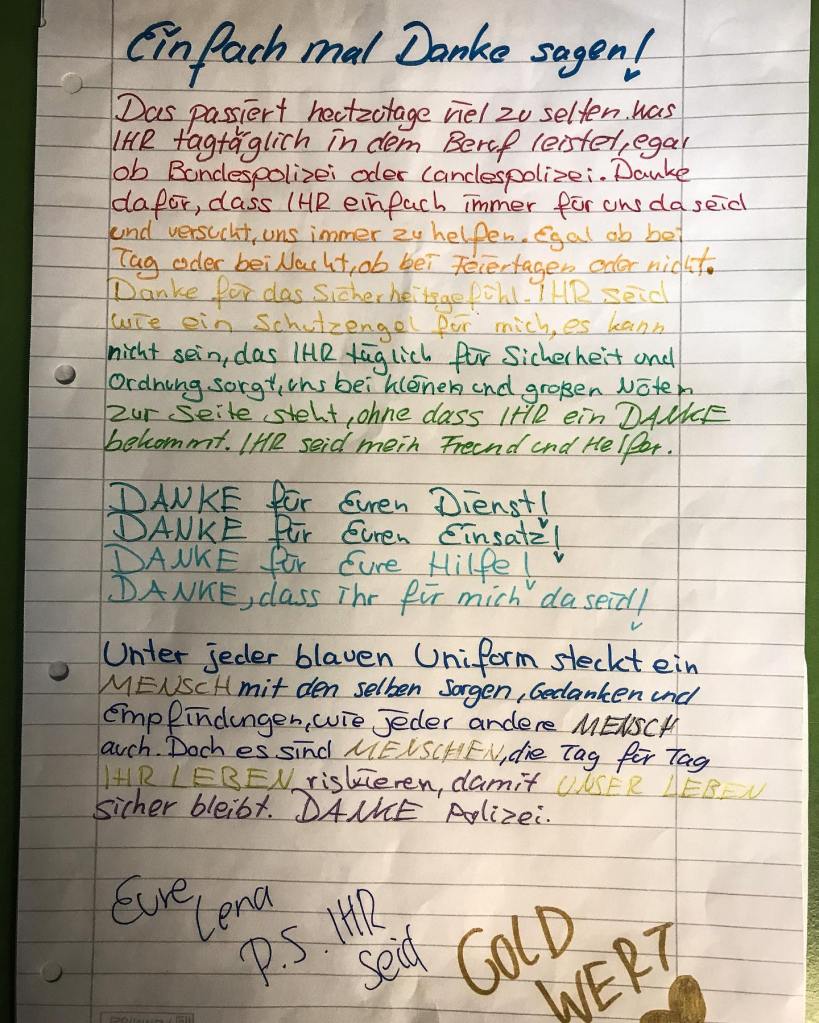 Einfach mal Danke sagen!
Das passiert heutzutage viel zu selten. Was
IHR tagtäglich in dem Beruf leistet, egal
ob Bundespolizei oder Landespolizei. Danke
dafür, dass IHR einfach immer für uns da seid
und versucht, uns immer zu helfen. Egal ob bei
Tag oder bei Nacht, ob bei Feiertagen oder nicht.
Danke für das Sicherheitsgefühl. IHR seid
wie ein Schutzengel für mich, es kann
nicht sein, das IHR täglich für Sicherheit und
Ordnung sorgt, uns bei kleinen und großen Nöten
zur Seite steht, ohne dass IHR ein DANKE
bekommt. IHR seid mein Freund und Helfer.
DANKE für Euren Dienst!
DANKE für Euren Einsatz!
DANKE für Eure Hilfe!
DANKE, dass ihr für mich da seid!
Unter jeder blauen Uniform steckt ein
MENSCH mit den selben Sorgen, Gedanken und
Empfindungen, wie jeder andere MENSCH
auch. Doch es sind MENSCHEN, die Tag für Tag
IHR LEBEN riskieren, damit UNSER LEBEN
sicher bleibt. DANKE Polizei.
Eure Lena
P.S. IHR
seid
GOLD
WERT